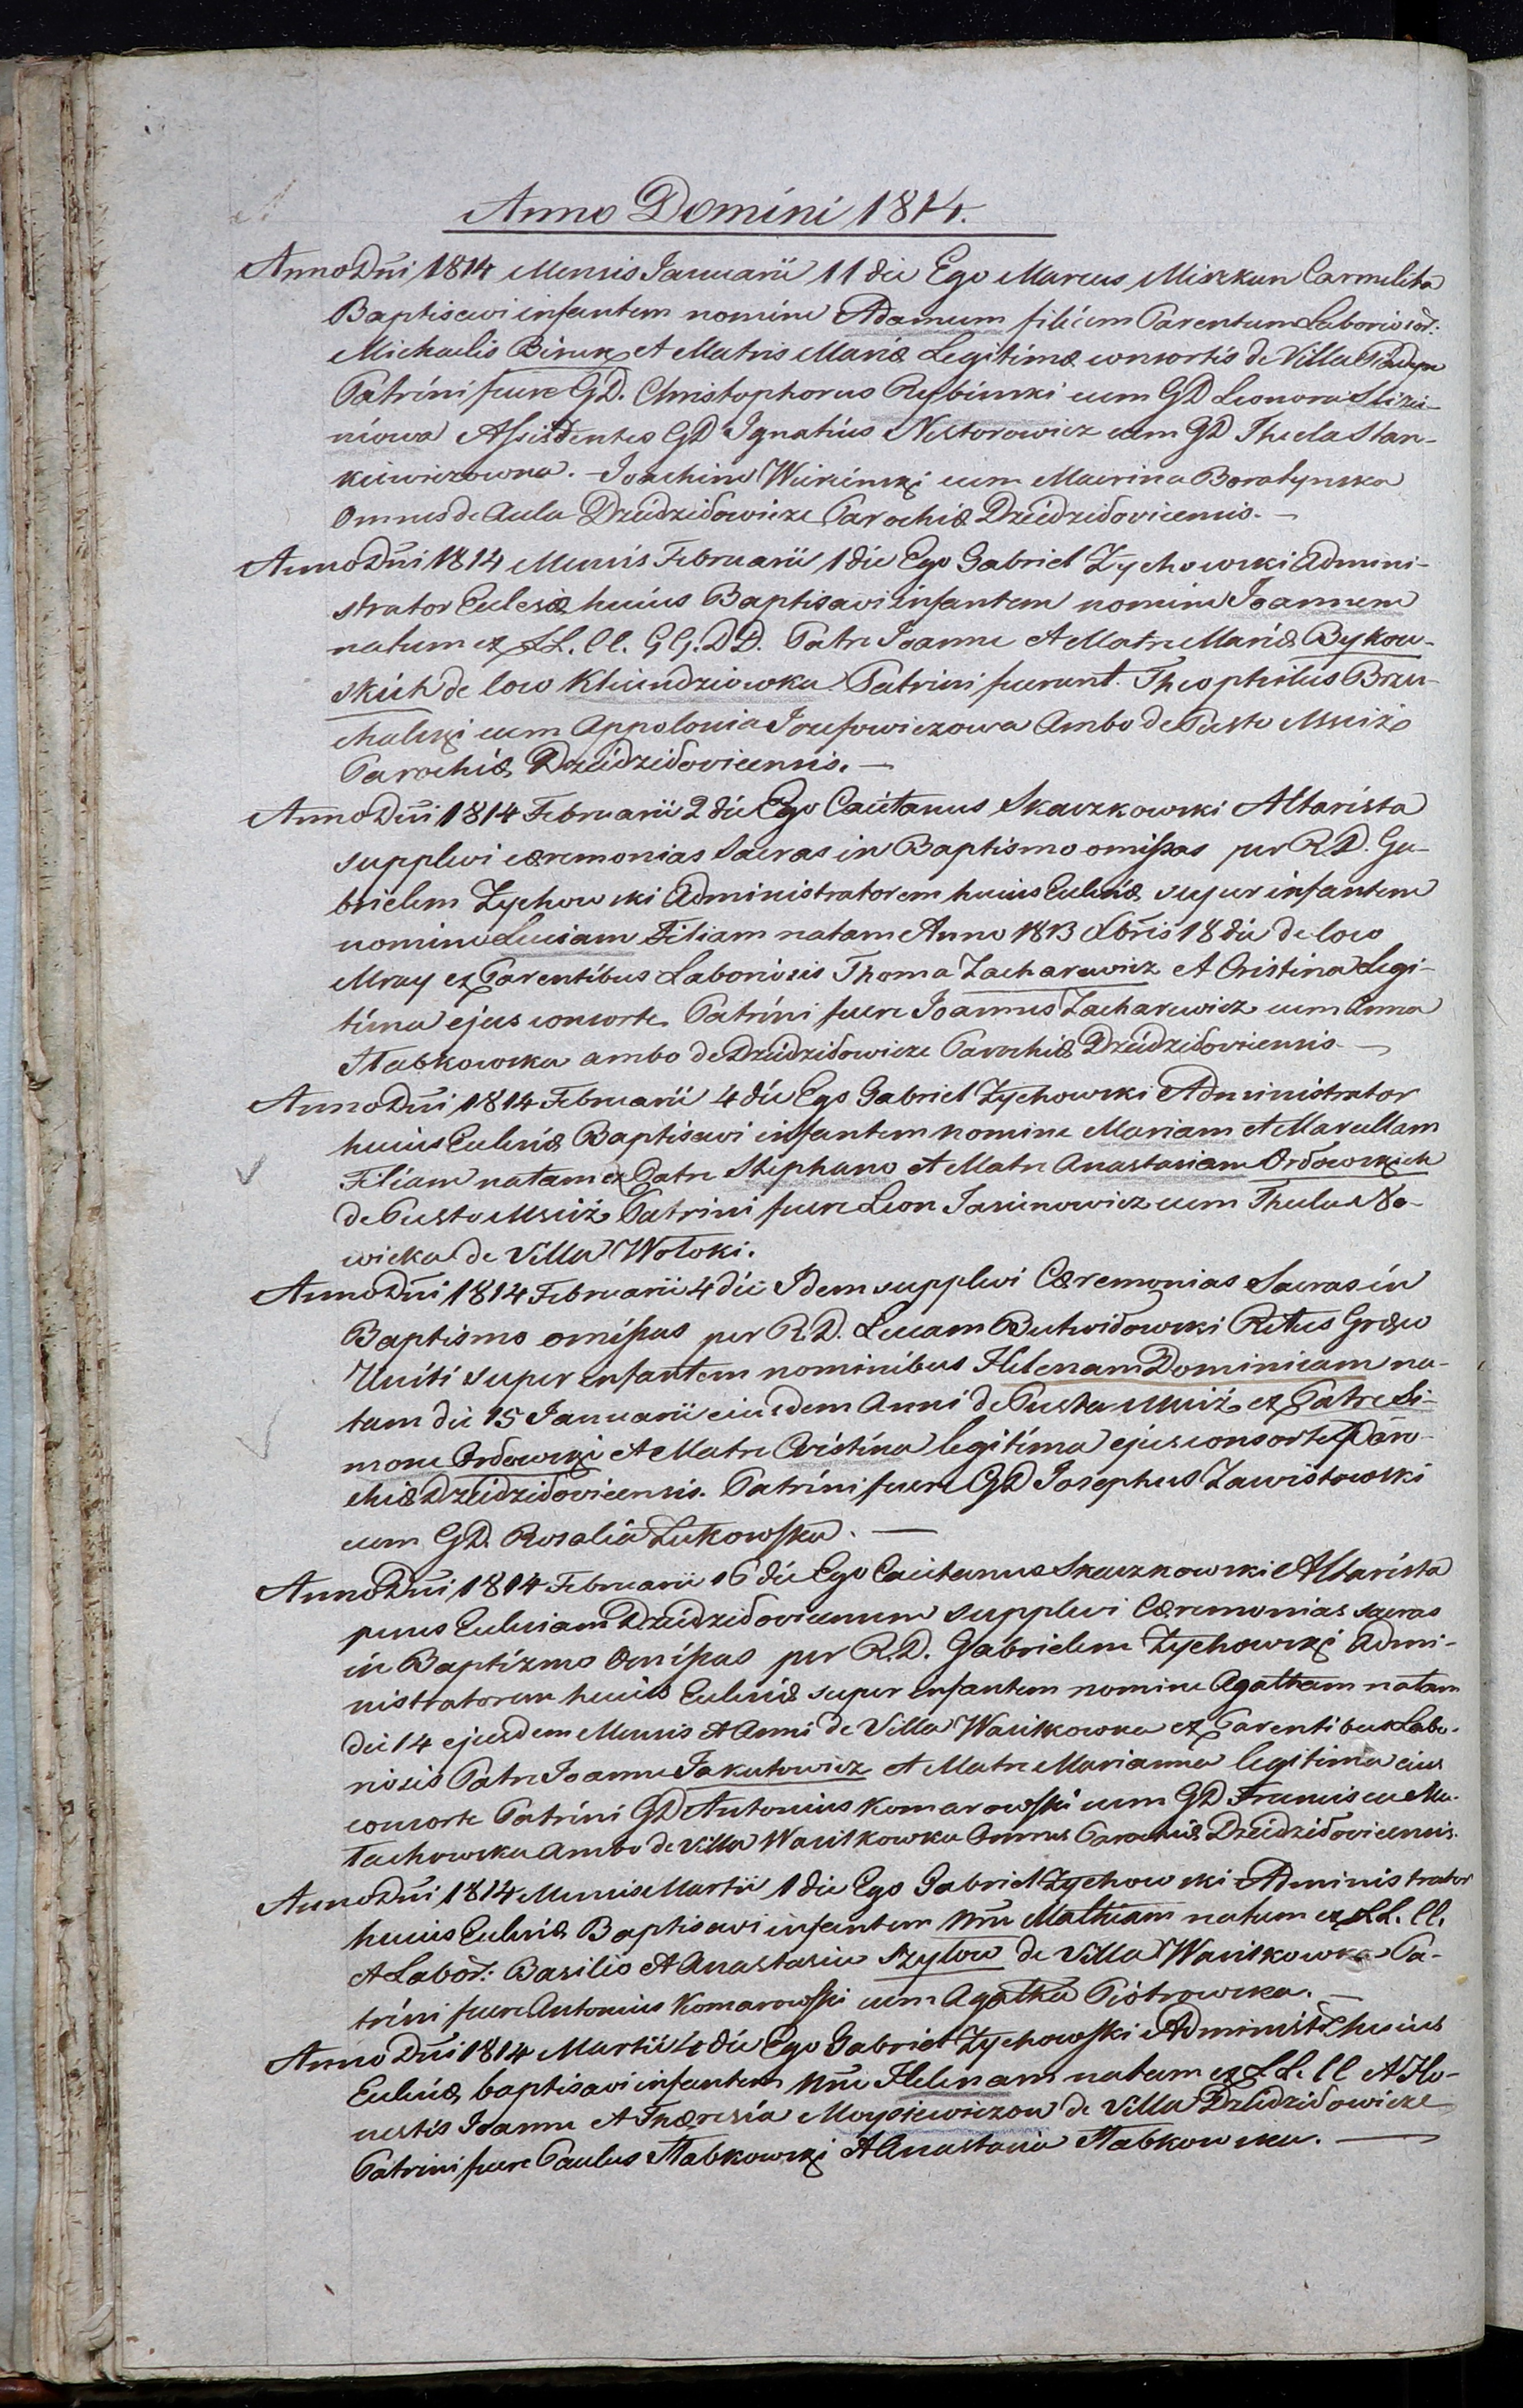 Anno Domini 1814.
Anno Dni 1814 Mensis Januarii 11 die Ego Marcus Miszkun Carmelita
Baptisavi infantem nomine Adamum filium Parentum Laborios:
Michaelis Biruk et Matris Mariæ Legitimæ consortis de Villa
Patrini fuere GD. Christophorus Rubinski cum GD Leonora Slizi-
niowa Assistentes GD Ignatius Nestorowicz cum GD Thecla Stan-
kiewiczowna. Joachim Wiercinski cum Macrina Boratynska
Omnes de Aula Dziedziłowicze Parochiæ Dziedziłovicensis. —
Anno Dni 1814 Mensis Februarii 1 die Ego Gabriel Zychowski Admini-
strator Eclesiæ huius Baptisavi infantem nomine Joannem
natum ex LL. CC. GG. DD. Patre Joanne et Matre Mariæ Bykow-
skich de loco Kliundziowka Patrini fuerunt Theophilus Brzu-
chalski cum Appolonia Jozefowiczowa Ambo de Pusto Msciż
Parochiæ Dziedziłovicensis. —
Anno Dni 1814 Februarii 2 die Ego Caietanus Skaczkowski Altarista
supplevi cæremonias Sacras in Baptismo omissas per R.D. Ga-
brielem Zychowski Administratorem huius Eclesiæ super infantem
nomine Luciam Filiam natam Anno 1813 Xbris 18 die de loco
Mray ex Parentibus Laboriosis Thoma Zacharewicz et Cristina Legi-
tima ejus consorte Patrini fuere Joannes Zacharewicz cum Anna
Stabkowska ambo de Dziedziłowicze Parochiæ Dziedziłoviensis —
Anno Dni 1814 Februarii 4 die Ego Gabriel Zychowski Administrator
huius Eclesiæ Baptisavi infantem nomine Mariam et Marcellam
Filiam natam ex Patre Stephano et Matre Anastasiam Ordowskich
de Pusto Msciż Patrini fuere Leon Jasinowicz cum Thecla No-
wicka de Villa Wołoki.
Anno Dni 1814 Februarii 4 die Idem supplevi Cæremonias Sacras in
Baptismo omissas per R.D. Lucam Butwidowski Ritus Græco
Uniti super infantem nominibus Helenam Dominicam na-
tam die 15 Januarii eiusdem Anni de Pusta Msciż ex Patre Si-
mone Ordowski et Matre Cristina legitima ejus consorte Paro-
chiæ Dziedziłoviensis. Patrini fuere GD Josephus Zawistowski
cum GD. Rosalia Lukowska. —
Anno Dni 1814 Februarii 16 die Ego Caietanus Skaczkowski Altarista
penes Eclesiam Dziedziłoviensem supplevi Cæremonias sacras
in Baptizmo Omissas per R.D. Gabrielem Zychowski Admi-
nistratorem huius Eclesiæ super infantem nomine Agatham natam
die 14 ejusdem Mensis et Anni de Villa Wasilkowka ex Parentibus Labo-
riosis Patre Joanne Jakutowicz et Matre Marianna legitima eius
consorte Patrini GD Antonius Komarowski cum GD Francisca Ma-
łachowska Ambo de Villa Wasilkowka Omnes Parochiæ Dziedziłoviensis.
Anno Dni 1814 Mensis Martii 1 die Ego Gabriel Zychowski Administrator
huius Eclesiæ Baptisavi infantem nne Mathiam natum ex LL. CC.
et Labor: Basilio et Anastasia Szylow de Villa Wasilkowka Pa-
trini fuere Antonius Komarowski cum Agatha Piotrowska. —
Anno Dni 1814 Martii 4 die Ego Gabriel Zychowski Administr huius
Eclesiæ baptisavi infantem nne Helenam natam ex LL. CC et Ho-
nestis Joanne et Thæresia Moysiewiczow de Villa Dziedziłowicze
Patrini fuere Paulus Stabkowski et Anastasia Stabkowska. —